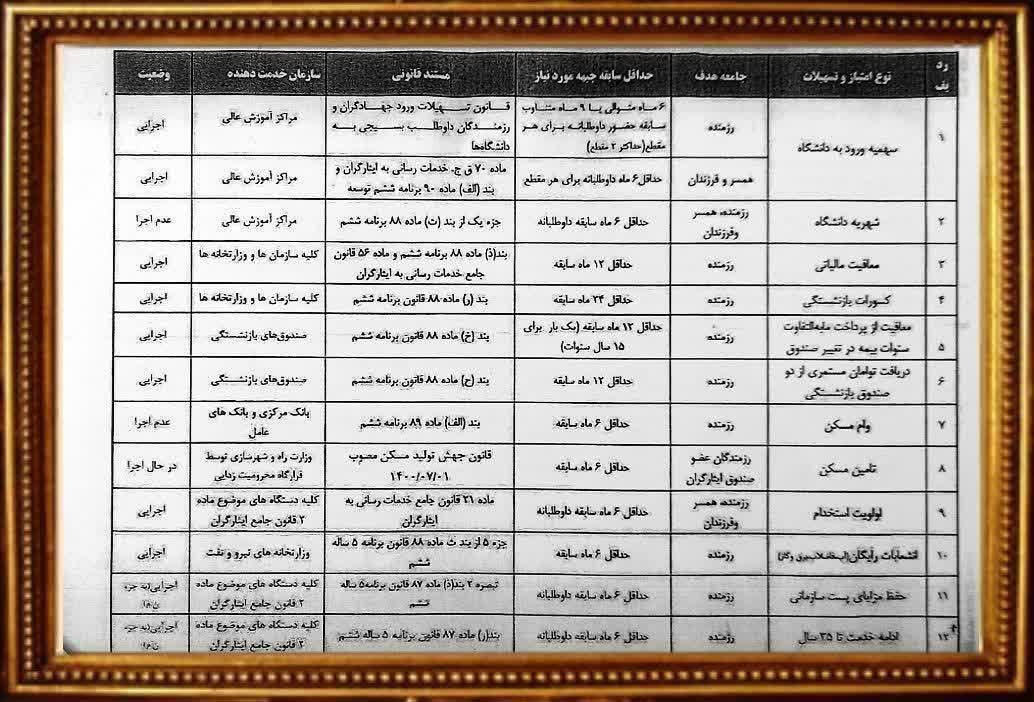 ردیف نوع امتیاز و تسهیلات جامعه هدف حداقل سابقه جبهه مورد نیاز مستند قانونی سازمان خدمت دهنده وضعیت
۱ سهمیه ورود به دانشگاه
رزمنده
۶ ماه متوالی یا ۹ ماه متناوب
سابقه حضور داوطلبانه برای هر
مقطع(حداکثر ۲ مقطع)
قانون تسهیلات ورود جهادگران و
رزمندگان داوطلب بسیجی به
دانشگاه‌ها
مراکز آموزش عالی
اجرایی
همسر و فرزندان
حداقل۶ ماه داوطلبانه برای هر مقطع
ماده ۷۰ ق ج. خدمات رسانی به ایثارگران و
بند (الف) ماده ۹۰ برنامه ششم توسعه
مراکز آموزش عالی
اجرایی
۲ شهریه دانشگاه
رزمنده، همسر
وفرزندان
حداقل ۶ ماه سابقه داوطلبانه
جزء یک از بند (ت) ماده ۸۸ برنامه ششم
مراکز آموزش عالی
عدم اجرا
۳ معافیت مالیاتی
رزمنده
حداقل ۱۲ ماه سابقه
بند(ذ) ماده ۸۸ برنامه ششم و ماده ۵۶ قانون
جامع خدمات رسانی به ایثارگران
کلیه سازمان ها و وزارتخانه ها
اجرایی
۴ کسورات بازنشستگی
رزمنده
حداقل ۲۴ ماه سابقه
بند (ر) ماده ۸۸ قانون برنامه ششم
کلیه سازمان ها و وزارتخانه ها
اجرایی
۵ معافیت از پرداخت مابه‌التفاوت
سنوات بیمه در تغییر صندوق
رزمنده
حداقل ۱۲ ماه سابقه (یک بار برای
۱۵ سال سنوات)
بند (خ) ماده ۸۸ قانون برنامه ششم
صندوق‌های بازنشستگی
اجرایی
۶ دریافت توامان مستمری از دو
صندوق بازنشستگی
رزمنده
حداقل ۱۲ ماه سابقه
بند (ح) ماده ۸۸ قانون برنامه ششم
صندوق‌های بازنشستگی
اجرایی
۷ وام مسکن
رزمنده
حداقل ۶ ماه سابقه
بند (الف) ماده ۸۹ برنامه ششم
بانک مرکزی و بانک های
عامل
عدم اجرا
۸ تامین مسکن
رزمندگان عضو
صندوق ایثارگران
حداقل ۶ ماه سابقه
قانون جهش تولید مسکن مصوب
۱۴۰۰/۰۷/۰۱
وزارت راه و شهرسازی توسط
قرارگاه محرومیت زدایی
در حال اجرا
۹ اولویت استخدام
رزمنده، همسر
وفرزندان
حداقل ۶ ماه سابقه داوطلبانه
ماده ۲۱ قانون جامع خدمات رسانی به
ایثارگران
کلیه دستگاه های موضوع ماده
۲ قانون جامع ایثارگران
اجرایی
۱۰ انشعابات رایگان
رزمنده
حداقل ۶ ماه سابقه
جزء ۵ از بند ث ماده ۸۸ قانون برنامه ۵ ساله
ششم
وزارتخانه های نیرو و نفت
اجرایی
۱۱ حفظ مزایای پست سازمانی
رزمنده
حداقل ۶ ماه سابقه داوطلبانه
تبصره ۲ بند(ذ) ماده ۸۷ قانون برنامه۵ ساله
ششم
کلیه دستگاه های موضوع ماده
۲ قانون جامع ایثارگران
اجرایی(به جزء
۱۲ ادامه خدمت تا ۳۵ سال
رزمنده
حداقل ۶ ماه سابقه داوطلبانه
بند(ز) ماده ۸۷ قانون برنامه ۵ ساله ششم
کلیه دستگاه های موضوع ماده
۲ قانون جامع ایثارگران
اجرایی(به جزء